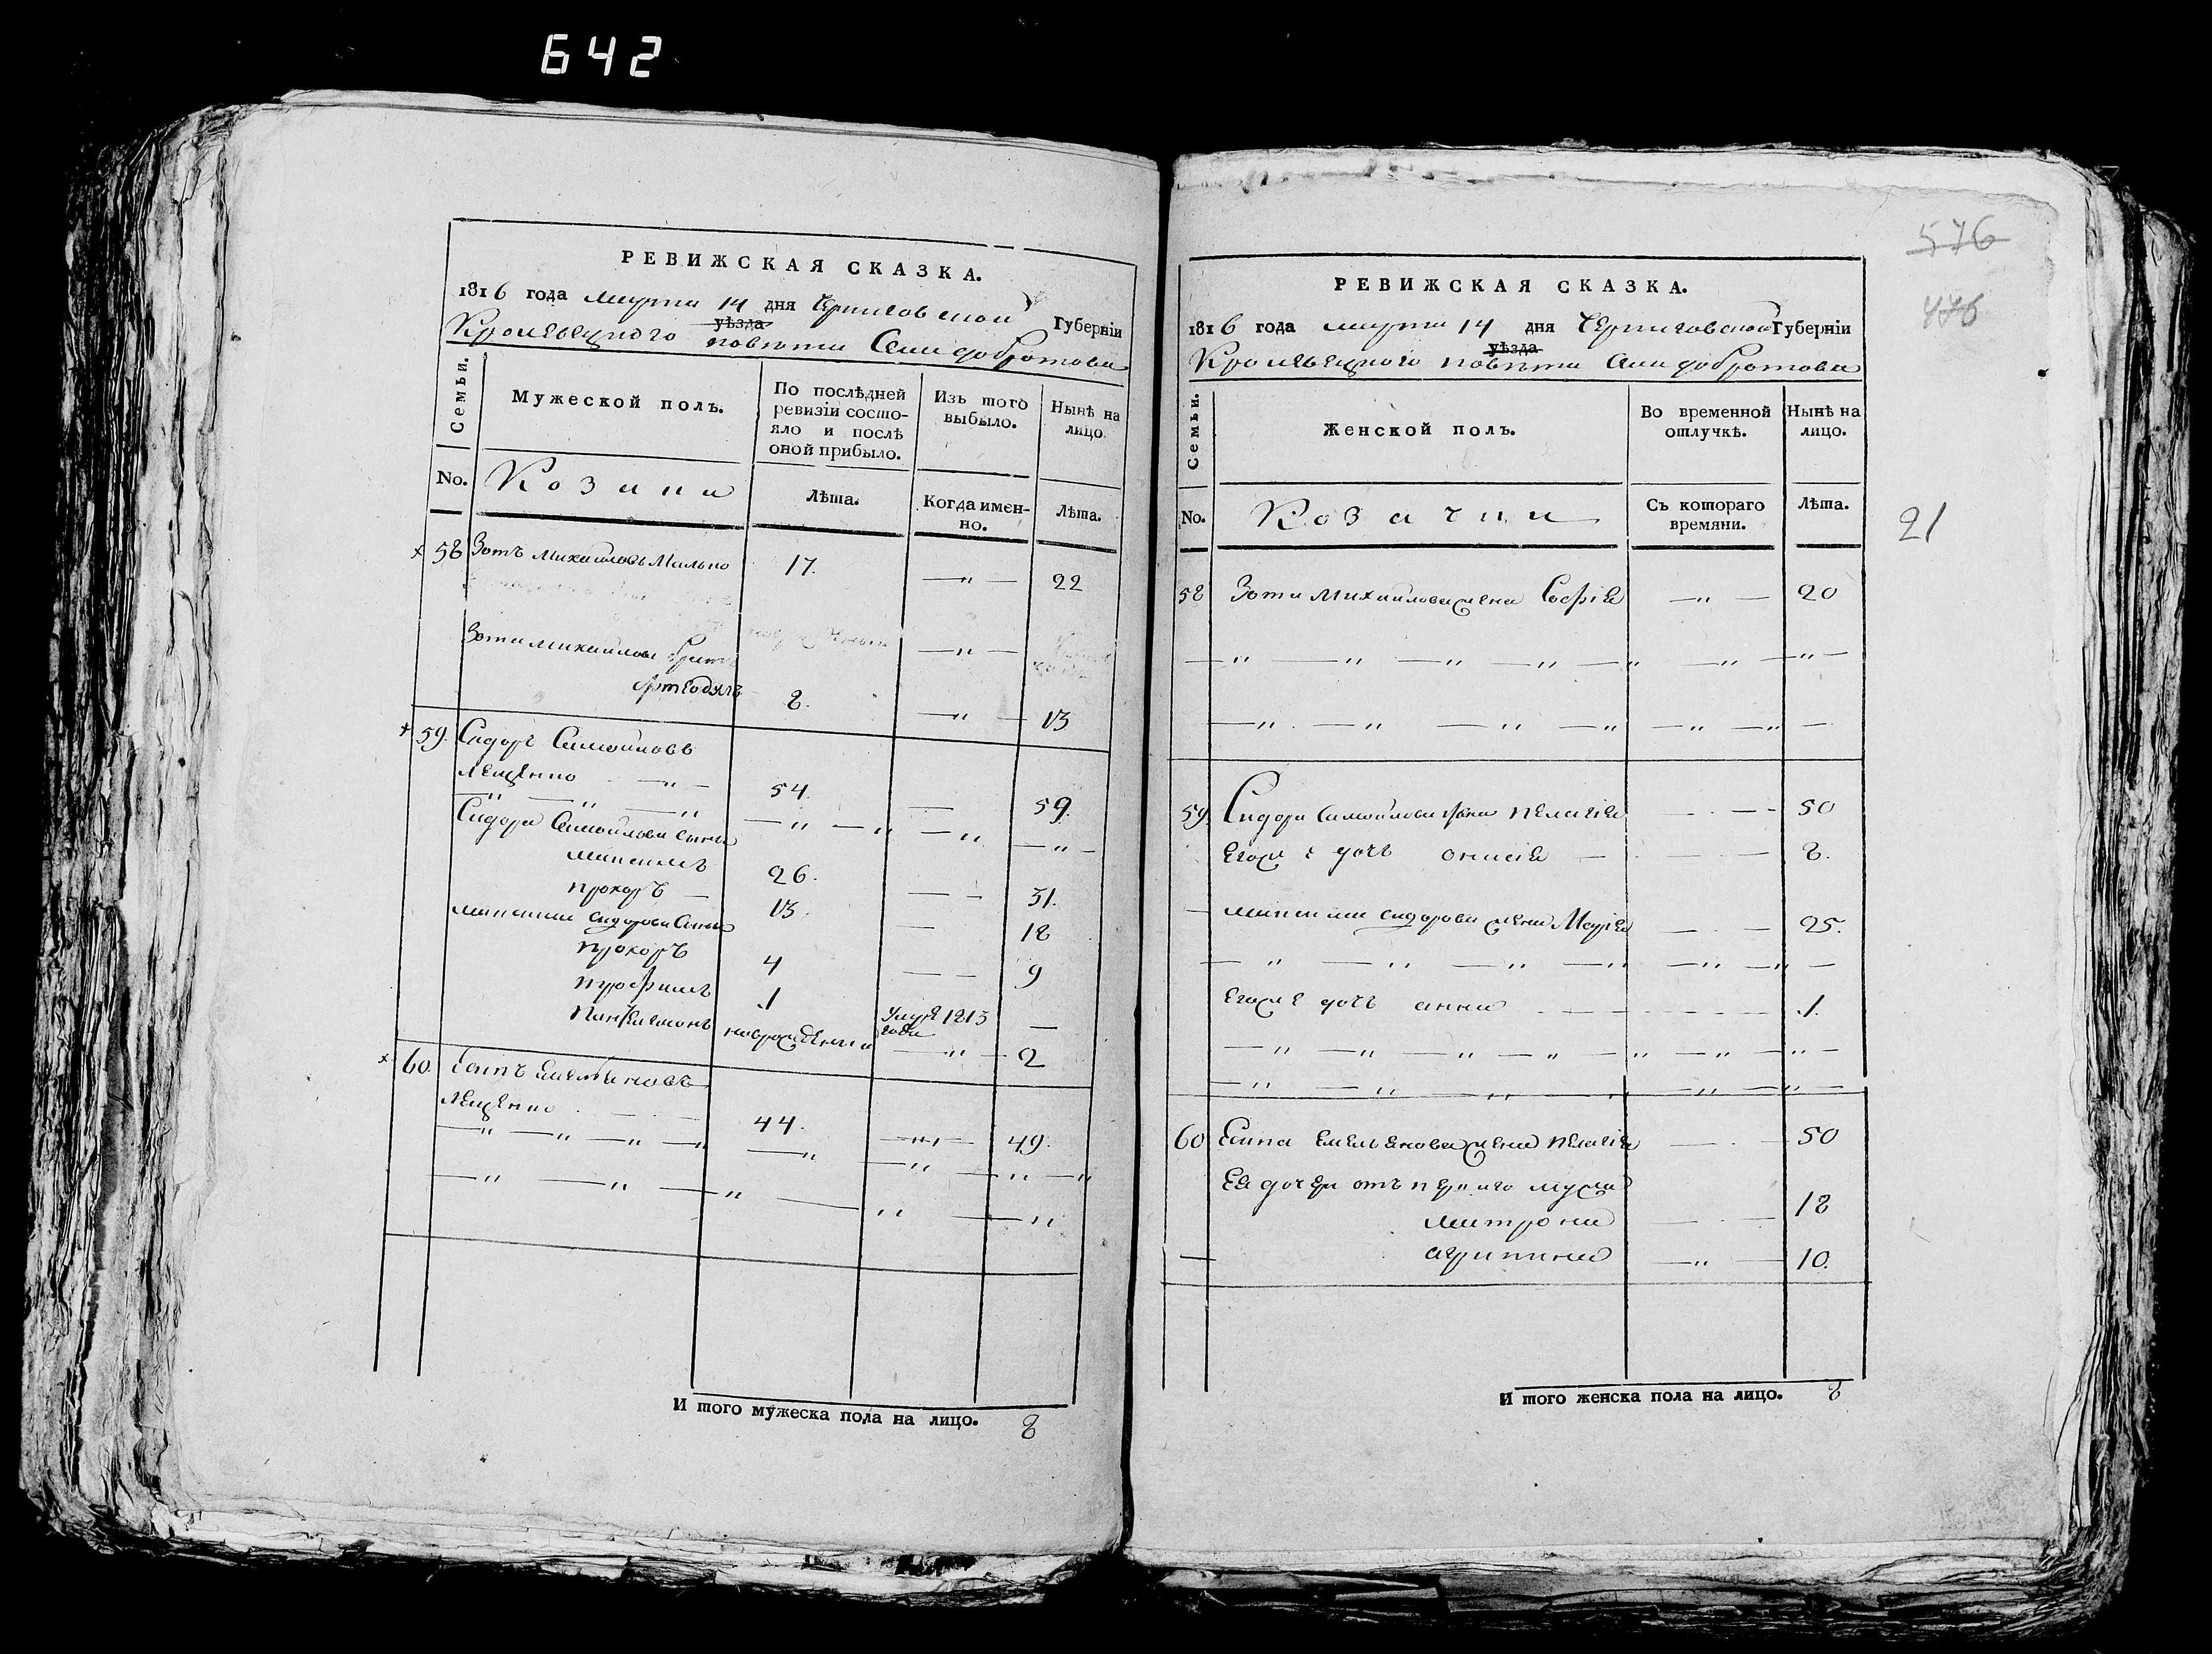 642
РЕВИЖСКАЯ СКАЗКА.
1816 года марта 14 дня Черниговской Губерніи
уѣзда
Кролевецкого повѣта Села Добротова
Семьи.
Мужеской полъ.
По послѣдней ревизіи состо-
яло и послѣ
оной прибыло.
Изъ того
выбыло.
Нынѣ на
лицо.
No.
Козаки
Лѣта.
Когда имен-
но.
Лѣта.
58 Зотъ Михайловъ Малько 17. 22
Зота Михайлова братъ
8. 13
59. Сидоръ Самойловъ
Лещенко 54. 59.
Сидора Самойлова сыны
Максимъ 26. 31.
Прохоръ 13. 18
Максима Сидорова сыны
Прохоръ 4 9
Трофимъ 1 Умре 1813
года
Пантелеимонъ новорожденны 2
60. Есипъ Емельяновъ
Лещенко 44. 49.
И того мужеска пола на лицо. 8
576
476
21
РЕВИЖСКАЯ СКАЗКА.
1816 года марта 14 дня Черниговской Губерніи
уѣзда
Кролевецкого повѣта Села Добротова
Семьи.
Женской полъ.
Во временной
отлучкѣ.
Нынѣ на
лицо.
No.
Козачки
Съ котораго
времяни.
Лѣта.
58 Зота Михайлова жена Софія 20
59. Сидора Самойлова жена Пелагія 50
Егоже дочь Онисія 8.
Максима Сидорова жена Марія 25.
Егоже дочь Анна 1.
60 Есипа Емельянова жена Пелагія 50
Ея дочери отъ перваго мужа
Матрона 18
Агрипина 10.
И того женска пола на лицо. 8